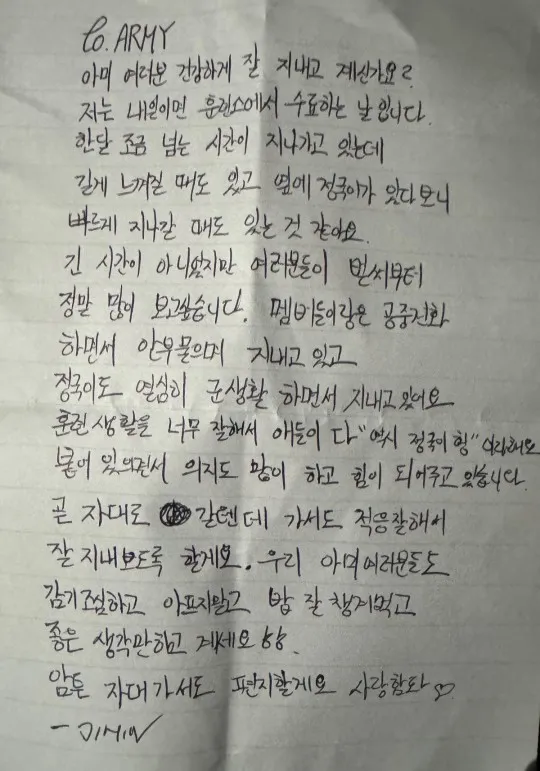 to. ARMY
아미 여러분 건강하게 잘 지내고 계신가요?
저는 내일이면 훈련소에서 수료하는 날 입니다.
한달 조금 넘는 시간이 지나가고 있는데
길게 느껴질 때도 있고 옆에 정국이가 있다보니
빠르게 지나갈 때도 있는 것 같아요.
긴 시간이 아니였지만 여러분들이 벌써부터
정말 많이 보고싶습니다. 멤버들이랑은 공중전화
하면서 안부물으며 지내고 있고
정국이도 열심히 군생활 하면서 지내고 있어요
훈련 생활을 너무 잘해서 애들이 다 "역시 정국이 형" 이래요
붙어 있으면서 의지도 많이 하고 힘이 되어주고 있습니다.
곧 자대로 갈텐데 가서도 적응잘해서
잘 지내보도록 할게요. 우리 아미여러분들도
감기조심하고 아프지말고 밥 잘 챙겨먹고
좋은 생각만하고 계세요
암튼 자대가서도 편지할게요 사랑함다 ♡
- JIMIN